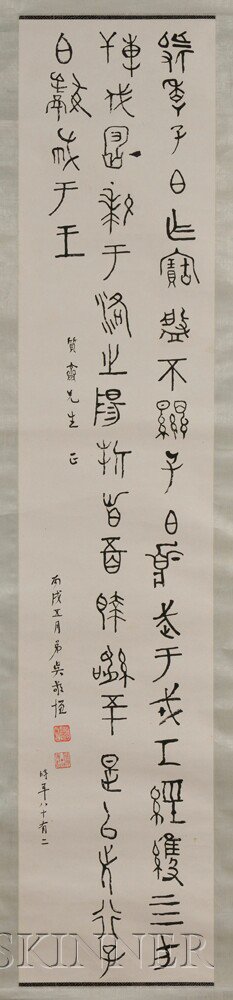 虢季子白乍寶盤不顯子白壯武于戎工經維四方
搏伐玁狁于洛之陽折首五百執訊五十是以先行子
白獻馘于王
質先生正
丙戌五月弟吳敬恆
時年八十有二
SKINNER